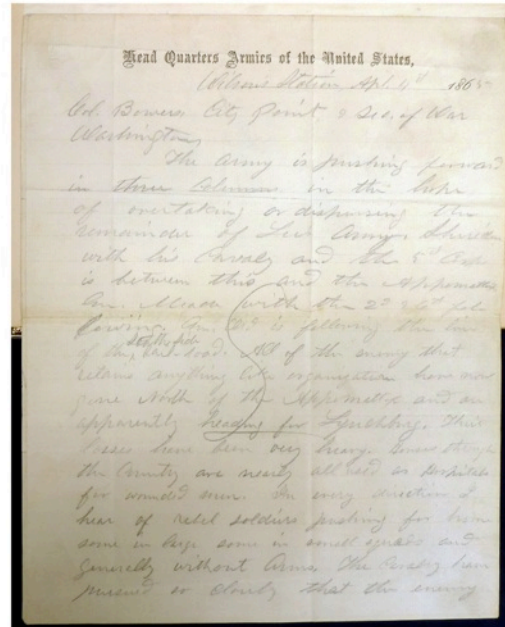 Head Quarters Armies of the United States,
Wilson's Station, Apl. 4th 1865
Col. Bowers City Point & Sec. of War
Washington
The Army is pushing forward
in three columns in the hope
of overtaking or dispersing the
remainder of Lee's Army. Sheridan
with his Cavalry and the 5th Corps
is between this and the Appomattox
Gen. Meade with the 2d & 6th fol
lowing. Gen. Ord is following the line
of the South side rail-road. All of the enemy that
retains anything like organization have now
gone North of the Appomattox and are
apparently heading for Lynchburg. Their
losses have been very heavy. Houses through
the Country are nearly all used as Hospitals
for wounded men. In every direction I
hear of rebel soldiers pushing for home
some in large some in small squads and
generally without Arms. The Cavalry have
pursued so closely that the enemy